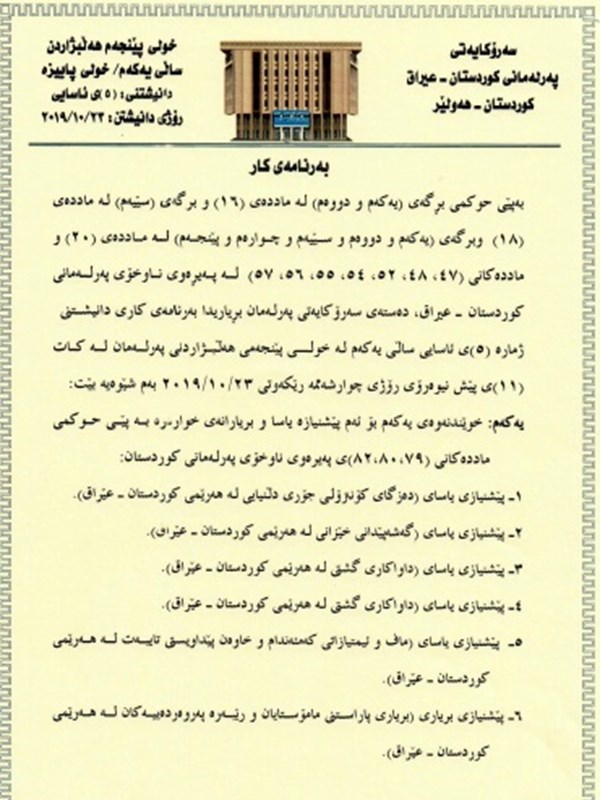 سەرۆکایەتی
پەرلەمانی کوردستان - عیراق
کوردستان - هەولێر
خولی پێنجەم هەڵبژاردن
ساڵی یەکەم/ خولی پاییزە
دانیشتنی: (٥)ی ئاسایی
رۆژی دانیشتن: ٢٠١٩/١٠/٢٣
بەرنامەی کار
بەپێی حوکمی برگەی (یەکەم و دووەم) لە ماددەی (١٦) و برگەی (سێیەم) لە ماددەی
(١٨) وبرگەی (یەکەم و دووەم و سێیەم و چوارەم و پێنجەم) لە ماددەی (٢٠) و
ماددەکانی (٤٧، ٤٨، ٥٢، ٥٤، ٥٥، ٥٦، ٥٧) لە پەیرەوی ناوخۆی پەرلەمانی
کوردستان - عیراق، دەستەی سەرۆکایەتی پەرلەمان بریاریدا بەرنامەی کاری دانیشتنی
ژمارە (٥)ی ئاسایی ساڵی یەکەم لە خولی پێنجەمی هەڵبژاردنی پەرلەمان لە کات
(١١)ی پێش نیوەرۆی رۆژی چوارشەممە رێکەوتی ٢٠١٩/١٠/٢٣ بەم شێوەیە بێت:
یەکەم: خوێندنەوەی یەکەم بۆ ئەم پێشنیازە یاسا و بریارانەی خوارەوە بە پێی حوکمی
ماددەکانی (٧٩، ٨٠، ٨٢)ی پەیرەوی ناوخۆی پەرلەمانی کوردستان:
١- پێشنیازی یاسای (دەزگای کۆنترۆڵی جۆری دڵنیایی لە هەرێمی کوردستان - عێراق).
٢- پێشنیازی یاسای (گەشەپێدانی خێزانی لە هەرێمی کوردستان - عێراق).
٣- پێشنیازی یاسای (داواکاری گشتی لە هەرێمی کوردستان - عێراق).
٤- پێشنیازی یاسای (داواکاری گشتی لە هەرێمی کوردستان - عێراق).
٥- پێشنیازی یاسای (ماف و ئیمتیازاتی کەمئەندام و خاوەن پێداویستی تایبەت لە هەرێمی
کوردستان - عێراق).
٦- پێشنیازی بریاری (بریاری پاراستنی مامۆستایان و رێبەرە پەروەردەییەکان لە هەرێمی
کوردستان - عێراق).